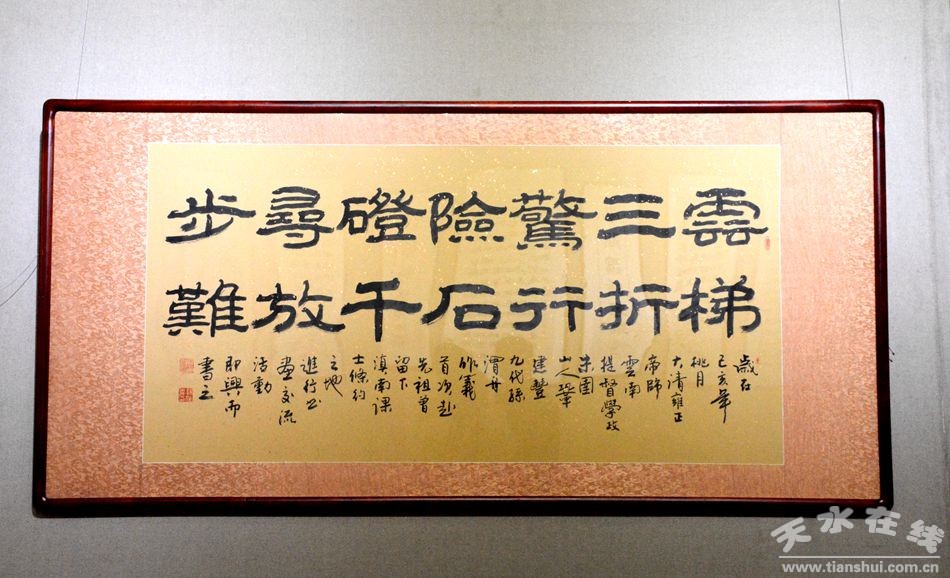 雲梯
三折
驚行
險石
磴千
尋放
步難
歲在
己亥年
桃月
大清雍正
帝師
雲南
提督學政
朱圉
山人鞏
建豐
九代孫
渭
義
首次赴
先祖曾
留下
滇南課
士條約
之地
進行书
畫交流
活動
即興而
書之
天水在线
www.tianshui.com.cn